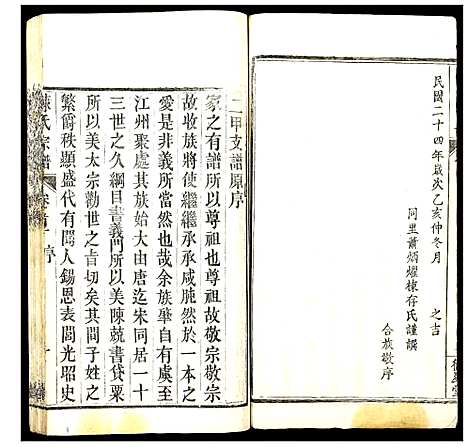 民國二十四年歲次乙亥仲冬月
之吉
同里蕭炳燿棟存氏謹譔
合族敬序
二甲支譜原序
家之有譜所以尊祖也尊祖故敬宗敬宗
故收族將使繼繼承承咸肫然於一本之
愛是非義所當然也哉余族肇自虞至
江州聚處其族始大由唐迄宋同居一十
三世之久綱目書義門所以美陳兢書貸粟
所以美太宗勸世之旨切矣其間子姓之
繁爵秩顯盛代有聞人錫恩表閭光昭史
陳氏宗譜
卷首
序